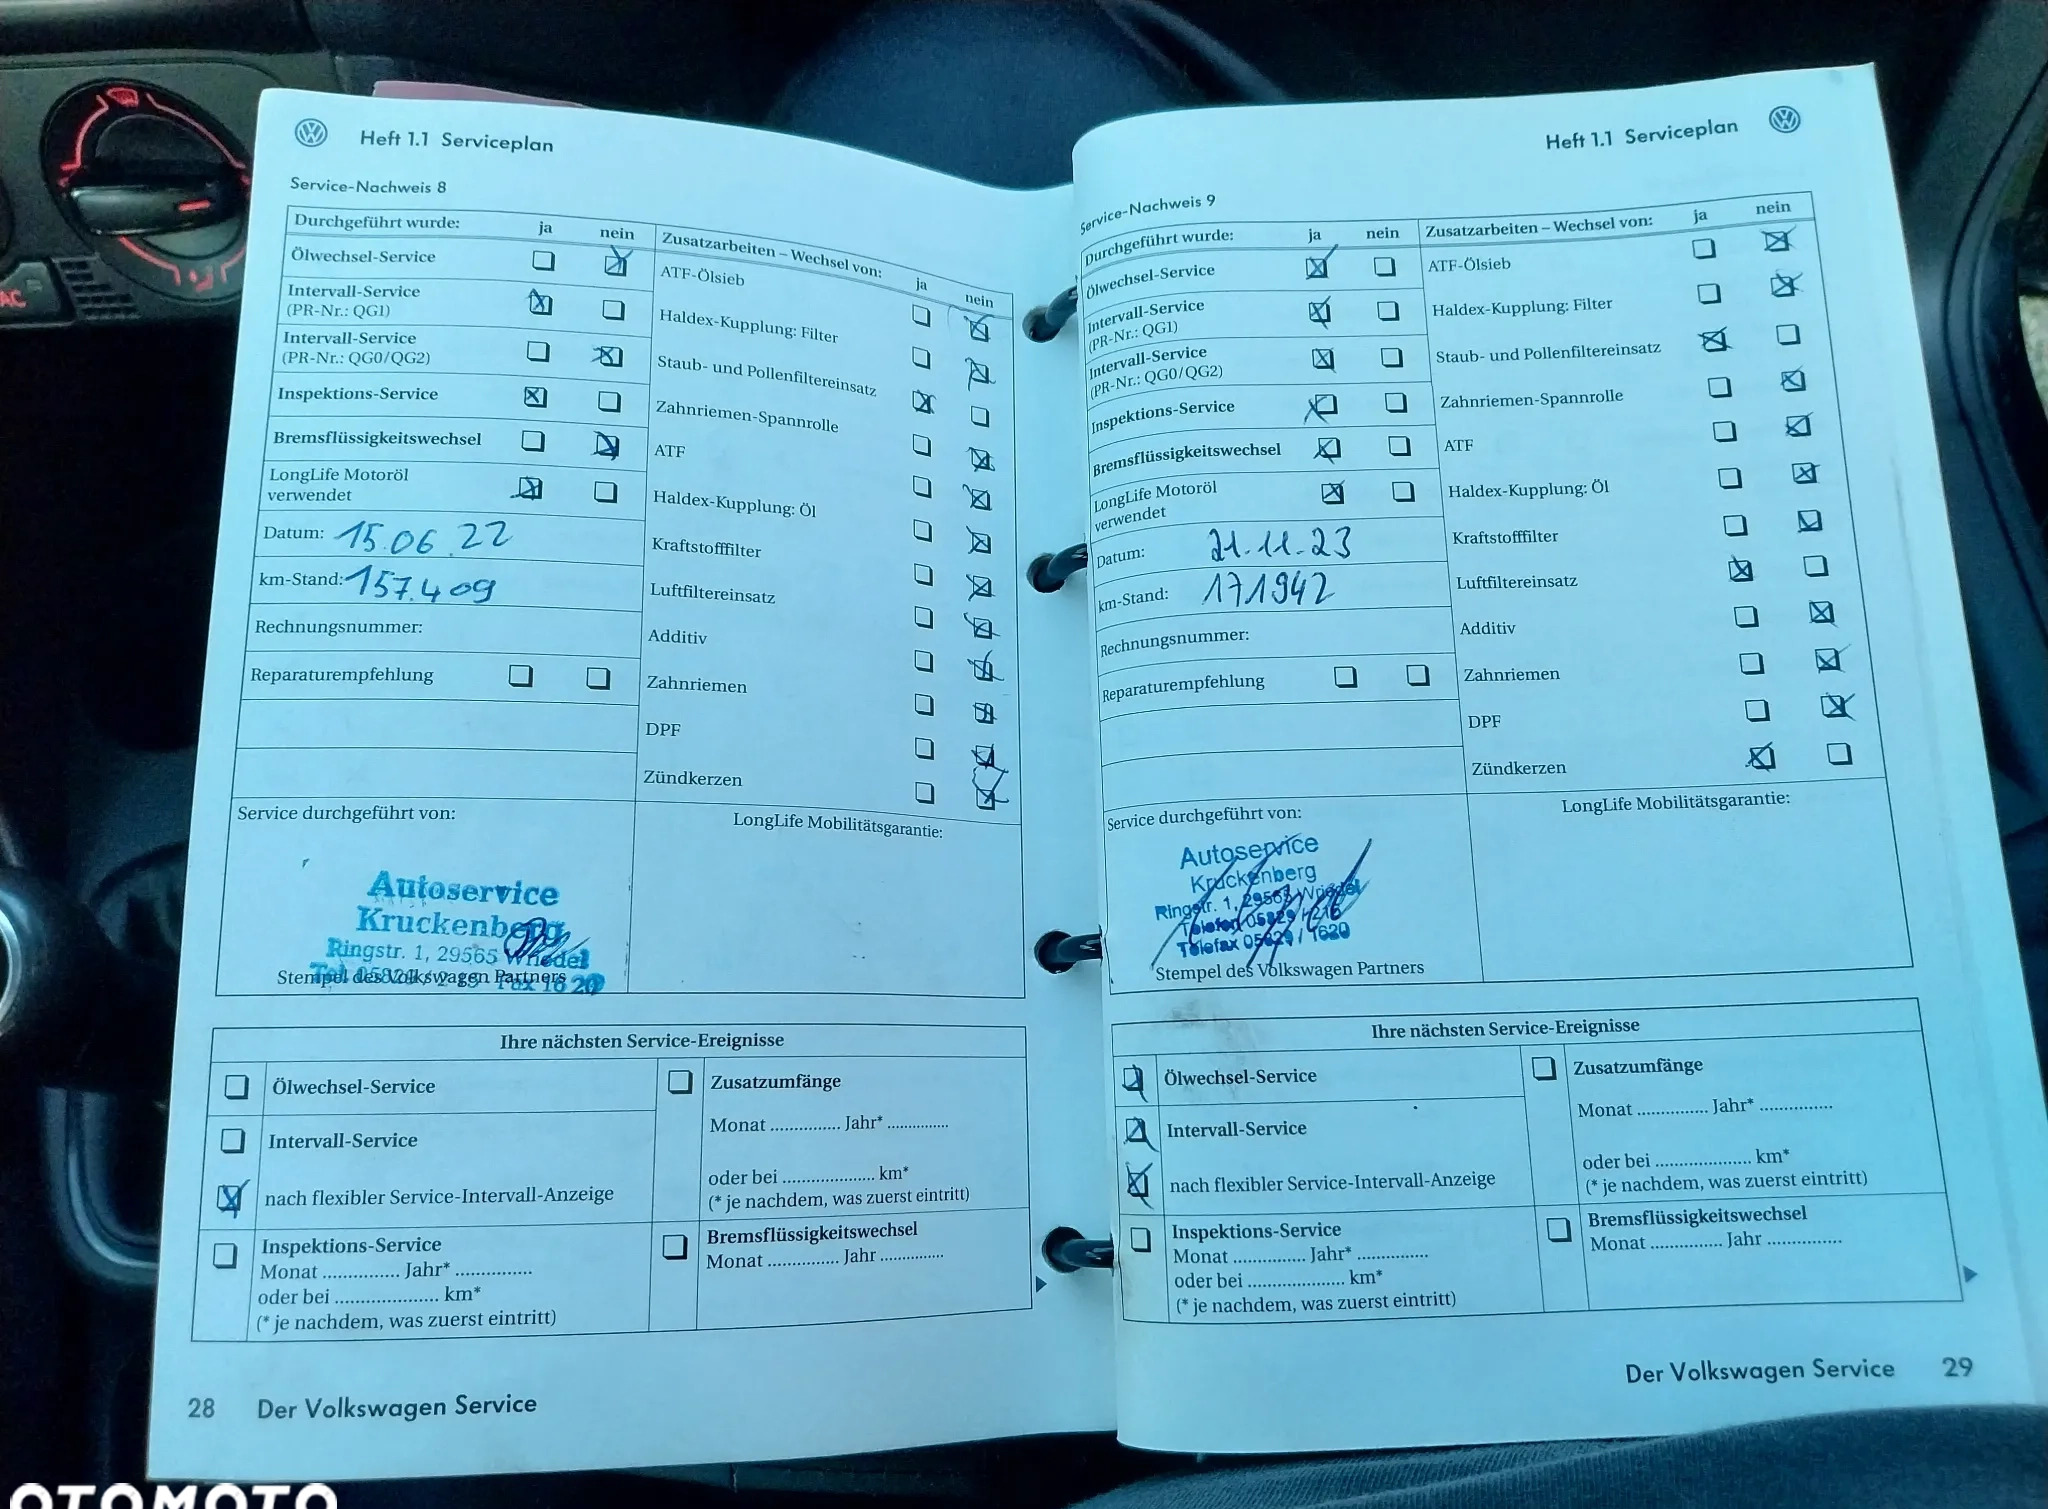 Heft 1.1 Serviceplan
Service-Nachweis 8
Durchgeführt wurde: ja nein
Ölwechsel-Service
Intervall-Service
(PR-Nr.: QG1)
Intervall-Service
(PR-Nr.: QG0/QG2)
Inspektions-Service
Bremsflüssigkeitswechsel
LongLife Motoröl
verwendet
Datum: 15.06.22
km-Stand: 157.409
Rechnungsnummer:
Reparaturempfehlung
Zusatzarbeiten – Wechsel von: ja nein
ATF-Ölsieb
Haldex-Kupplung: Filter
Staub- und Pollenfiltereinsatz
Zahnriemen-Spannrolle
ATF
Haldex-Kupplung: Öl
Kraftstofffilter
Luftfiltereinsatz
Additiv
Zahnriemen
DPF
Zündkerzen
Service durchgeführt von:
Autoservice
Kruckenberg
Ringstr. 1, 29565 Wriedel
Stempel des Volkswagen Partners
LongLife Mobilitätsgarantie:
Ihre nächsten Service-Ereignisse
Ölwechsel-Service
Intervall-Service
nach flexibler Service-Intervall-Anzeige
Inspektions-Service
Monat ............... Jahr* ...............
oder bei .................... km*
(* je nachdem, was zuerst eintritt)
Zusatzumfänge
Monat ............... Jahr* ...............
oder bei .................... km*
(* je nachdem, was zuerst eintritt)
Bremsflüssigkeitswechsel
Monat ............... Jahr ...............
28 Der Volkswagen Service
Heft 1.1 Serviceplan
Service-Nachweis 9
Durchgeführt wurde: ja nein
Ölwechsel-Service
Intervall-Service
(PR-Nr.: QG1)
Intervall-Service
(PR-Nr.: QG0/QG2)
Inspektions-Service
Bremsflüssigkeitswechsel
LongLife Motoröl
verwendet
Datum: 21.11.23
km-Stand: 171942
Rechnungsnummer:
Reparaturempfehlung
Zusatzarbeiten – Wechsel von: ja nein
ATF-Ölsieb
Haldex-Kupplung: Filter
Staub- und Pollenfiltereinsatz
Zahnriemen-Spannrolle
ATF
Haldex-Kupplung: Öl
Kraftstofffilter
Luftfiltereinsatz
Additiv
Zahnriemen
DPF
Zündkerzen
Service durchgeführt von:
Autoservice
Kruckenberg
Ringstr. 1, 29565 Wriedel
Telefon 05829 / 216
Telefax 05829 / 1620
Stempel des Volkswagen Partners
LongLife Mobilitätsgarantie:
Ihre nächsten Service-Ereignisse
Ölwechsel-Service
Intervall-Service
nach flexibler Service-Intervall-Anzeige
Inspektions-Service
Monat ............... Jahr* ...............
oder bei .................... km*
(* je nachdem, was zuerst eintritt)
Zusatzumfänge
Monat ............... Jahr* ...............
oder bei .................... km*
(* je nachdem, was zuerst eintritt)
Bremsflüssigkeitswechsel
Monat ............... Jahr ...............
Der Volkswagen Service 29
AC
OTOMOTO